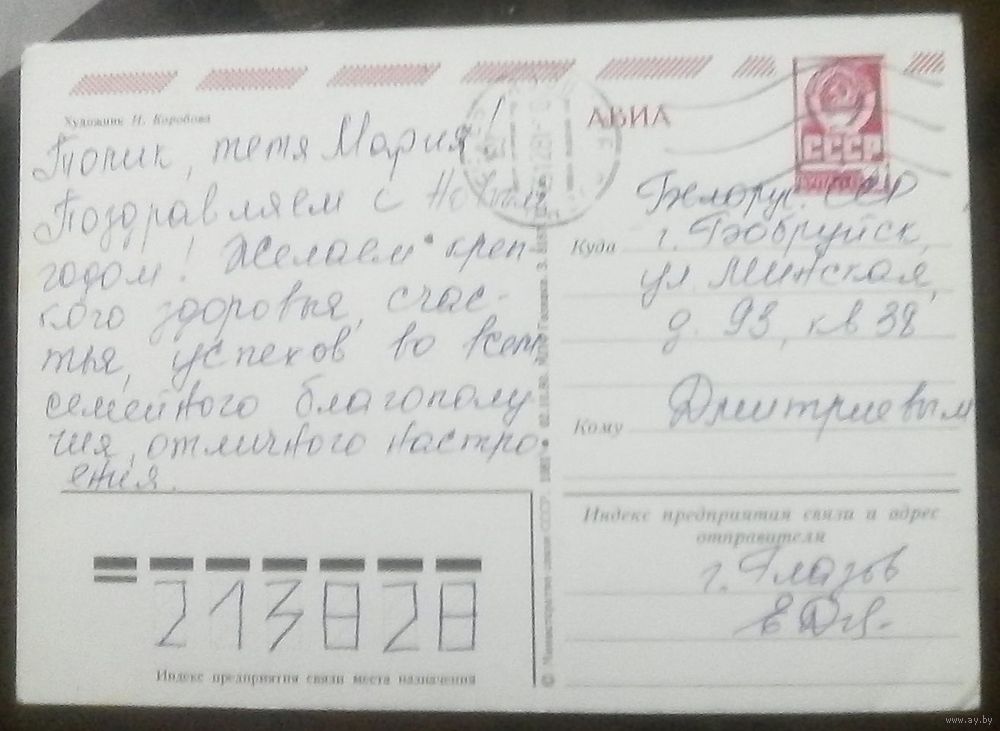 Художник И. Коробова
АВИА
СССР
Топик, тетя Мария!
Поздравляем с Новым
годом! Желаем креп-
кого здоровья, счас-
тья, успехов во всем
семейного благополу
чия, отличного настро
ения.
Белорус. ССР,
Куда г. Бобруйск,
ул. Минская,
д. 93, кв 38
Кому Дмитриевым
Индекс предприятия связи и адрес
отправителя
г. Глазов
213828
Индекс предприятия связи места назначения
© Министерство связи СССР. 1981
www.ay.by